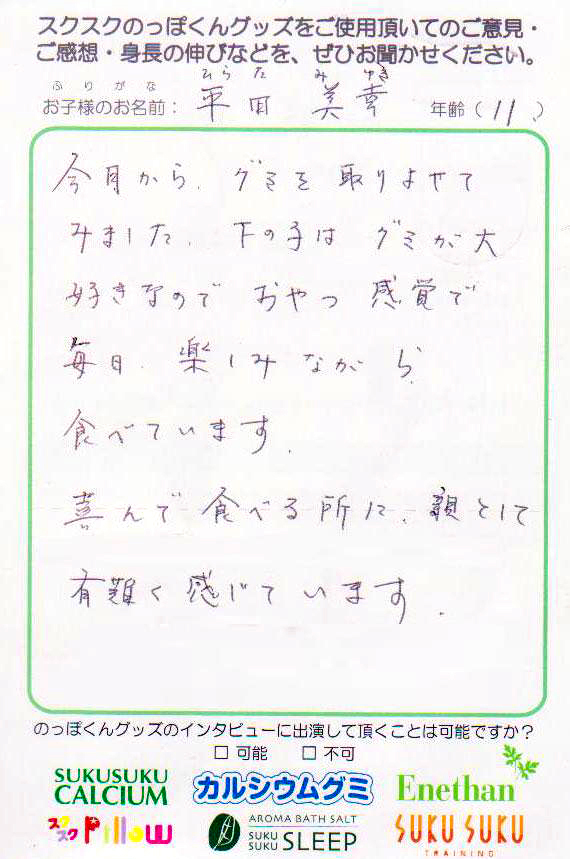 スクスクのっぽくんグッズをご使用頂いてのご意見・
ご感想・身長の伸びなどを、ぜひお聞かせください。
ふりがな ひらた みゆき
お子様のお名前： 平田 美幸 年齢（ 11 ）
今月から、グミを取りよせて
みました。下の子はグミが大
好きなので おやつ感覚で
毎日、楽しみながら
食べています。
喜んで食べる所に、親として
有難く感じています。
のっぽくんグッズのインタビューに出演して頂くことは可能ですか？
□ 可能 □ 不可
SUKUSUKU
CALCIUM
カルシウムグミ
Enethan
スクスク Pillow
AROMA BATH SALT
SUKU
SUKU SLEEP
SUKU SUKU
TRAINING